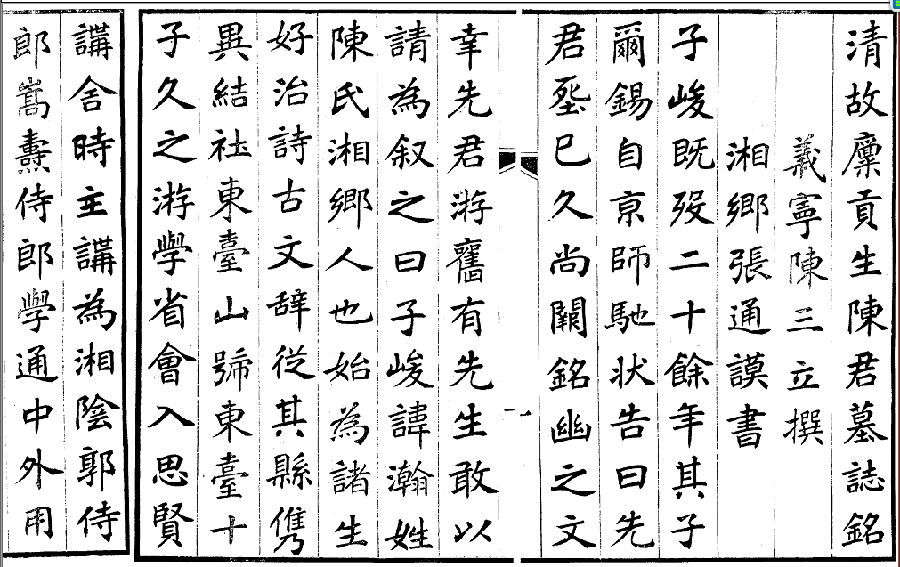 清故廩貢生陳君墓誌銘
義寧陳三立撰
湘鄉張通謨書
子峻既歿二十餘年其子
爾錫自京師馳狀告曰先
君塟巳久尚闕銘幽之文
一
幸先君游舊有先生敢以
請為叙之曰子峻諱瀚姓
陳氏湘鄉人也始為諸生
好治詩古文辭從其縣儁
異結社東臺山號東臺十
子久之游學省會入思賢
講舍時主講為湘陰郭侍
郎嵩燾侍郎學通中外用